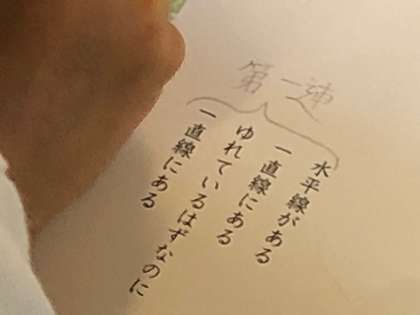 第一連
水平線がある
一直線にある
ゆれているはずなのに
一直線にある